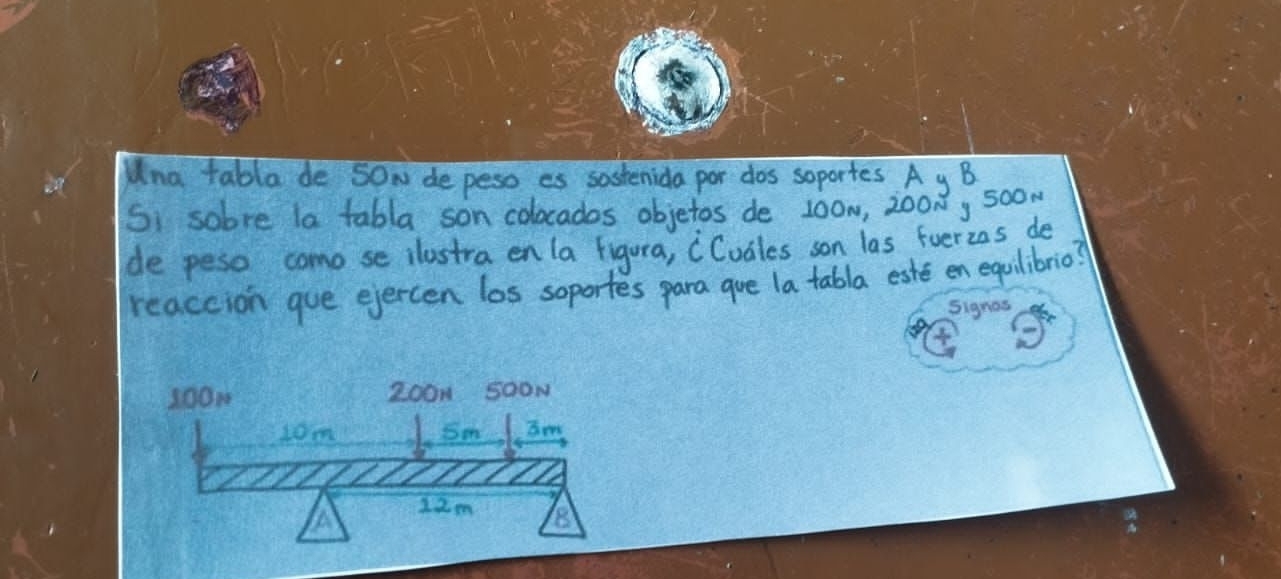 Una tabla de 50N de peso es sostenida por dos soportes A y B
Si sobre la tabla son colocados objetos de 100N, 200N y 500N
de peso como se ilustra en la figura, ¿Cuáles son las fuerzas de
reacción que ejercen los soportes para que la tabla esté en equilibrio?
Signos
izq der
+ -
100N 200N 500N
10m 5m 3m
12m
A B